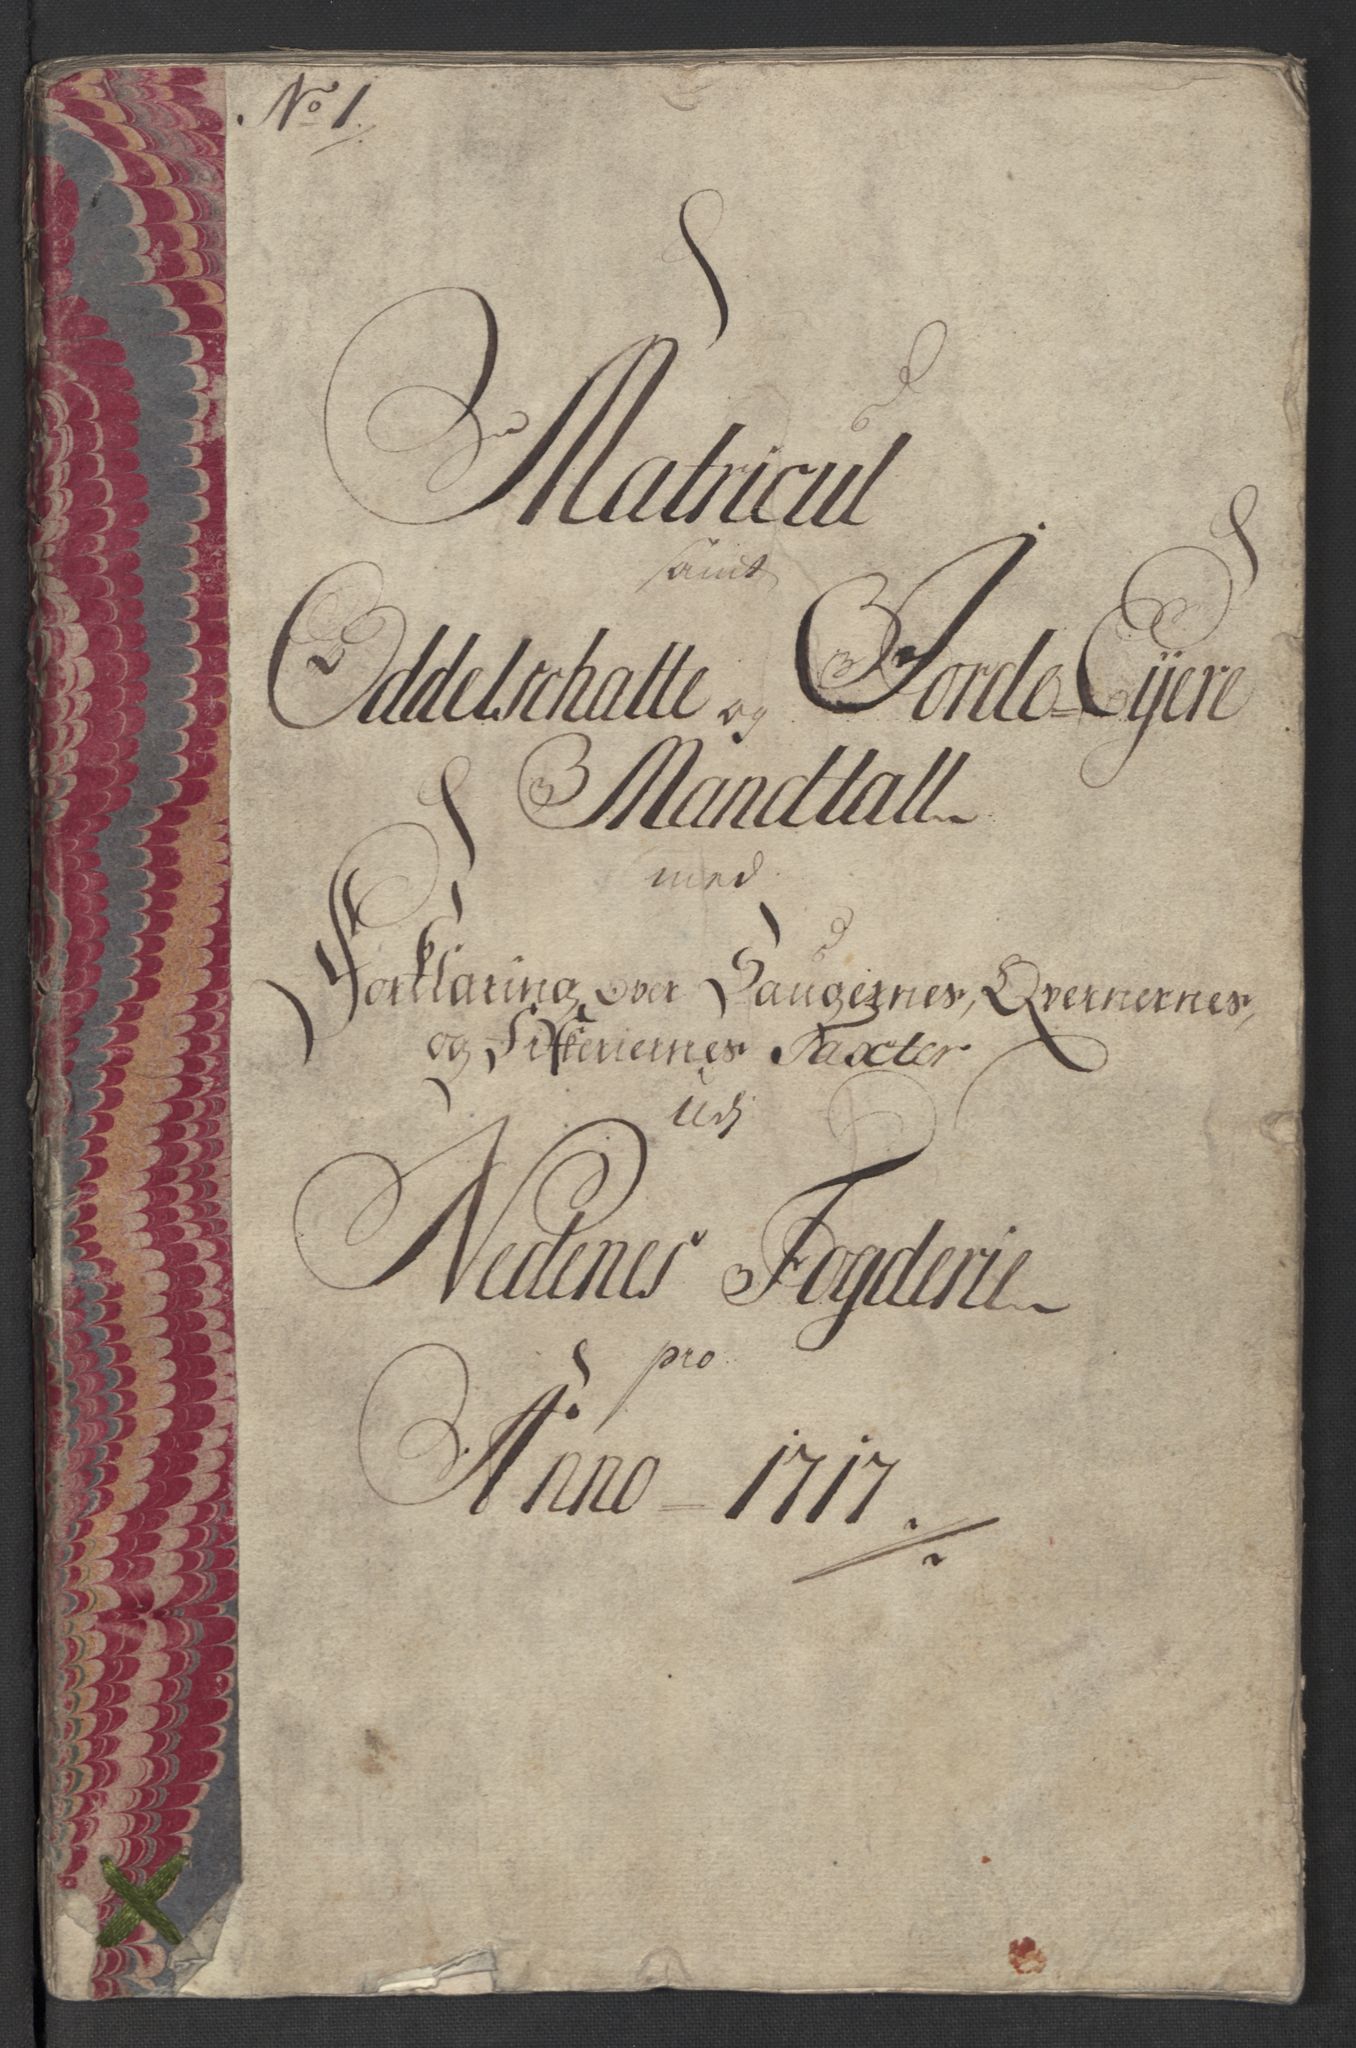 No 1.
Matricul
samt
Oddelschatte og Jorde-Eÿere
Mandtall
med
Forklaring over Saugernes, Qvernernes,
og Fiskeriernes Taxter
Udj
Nedenes Fogderie
pro
Anno - 1717.